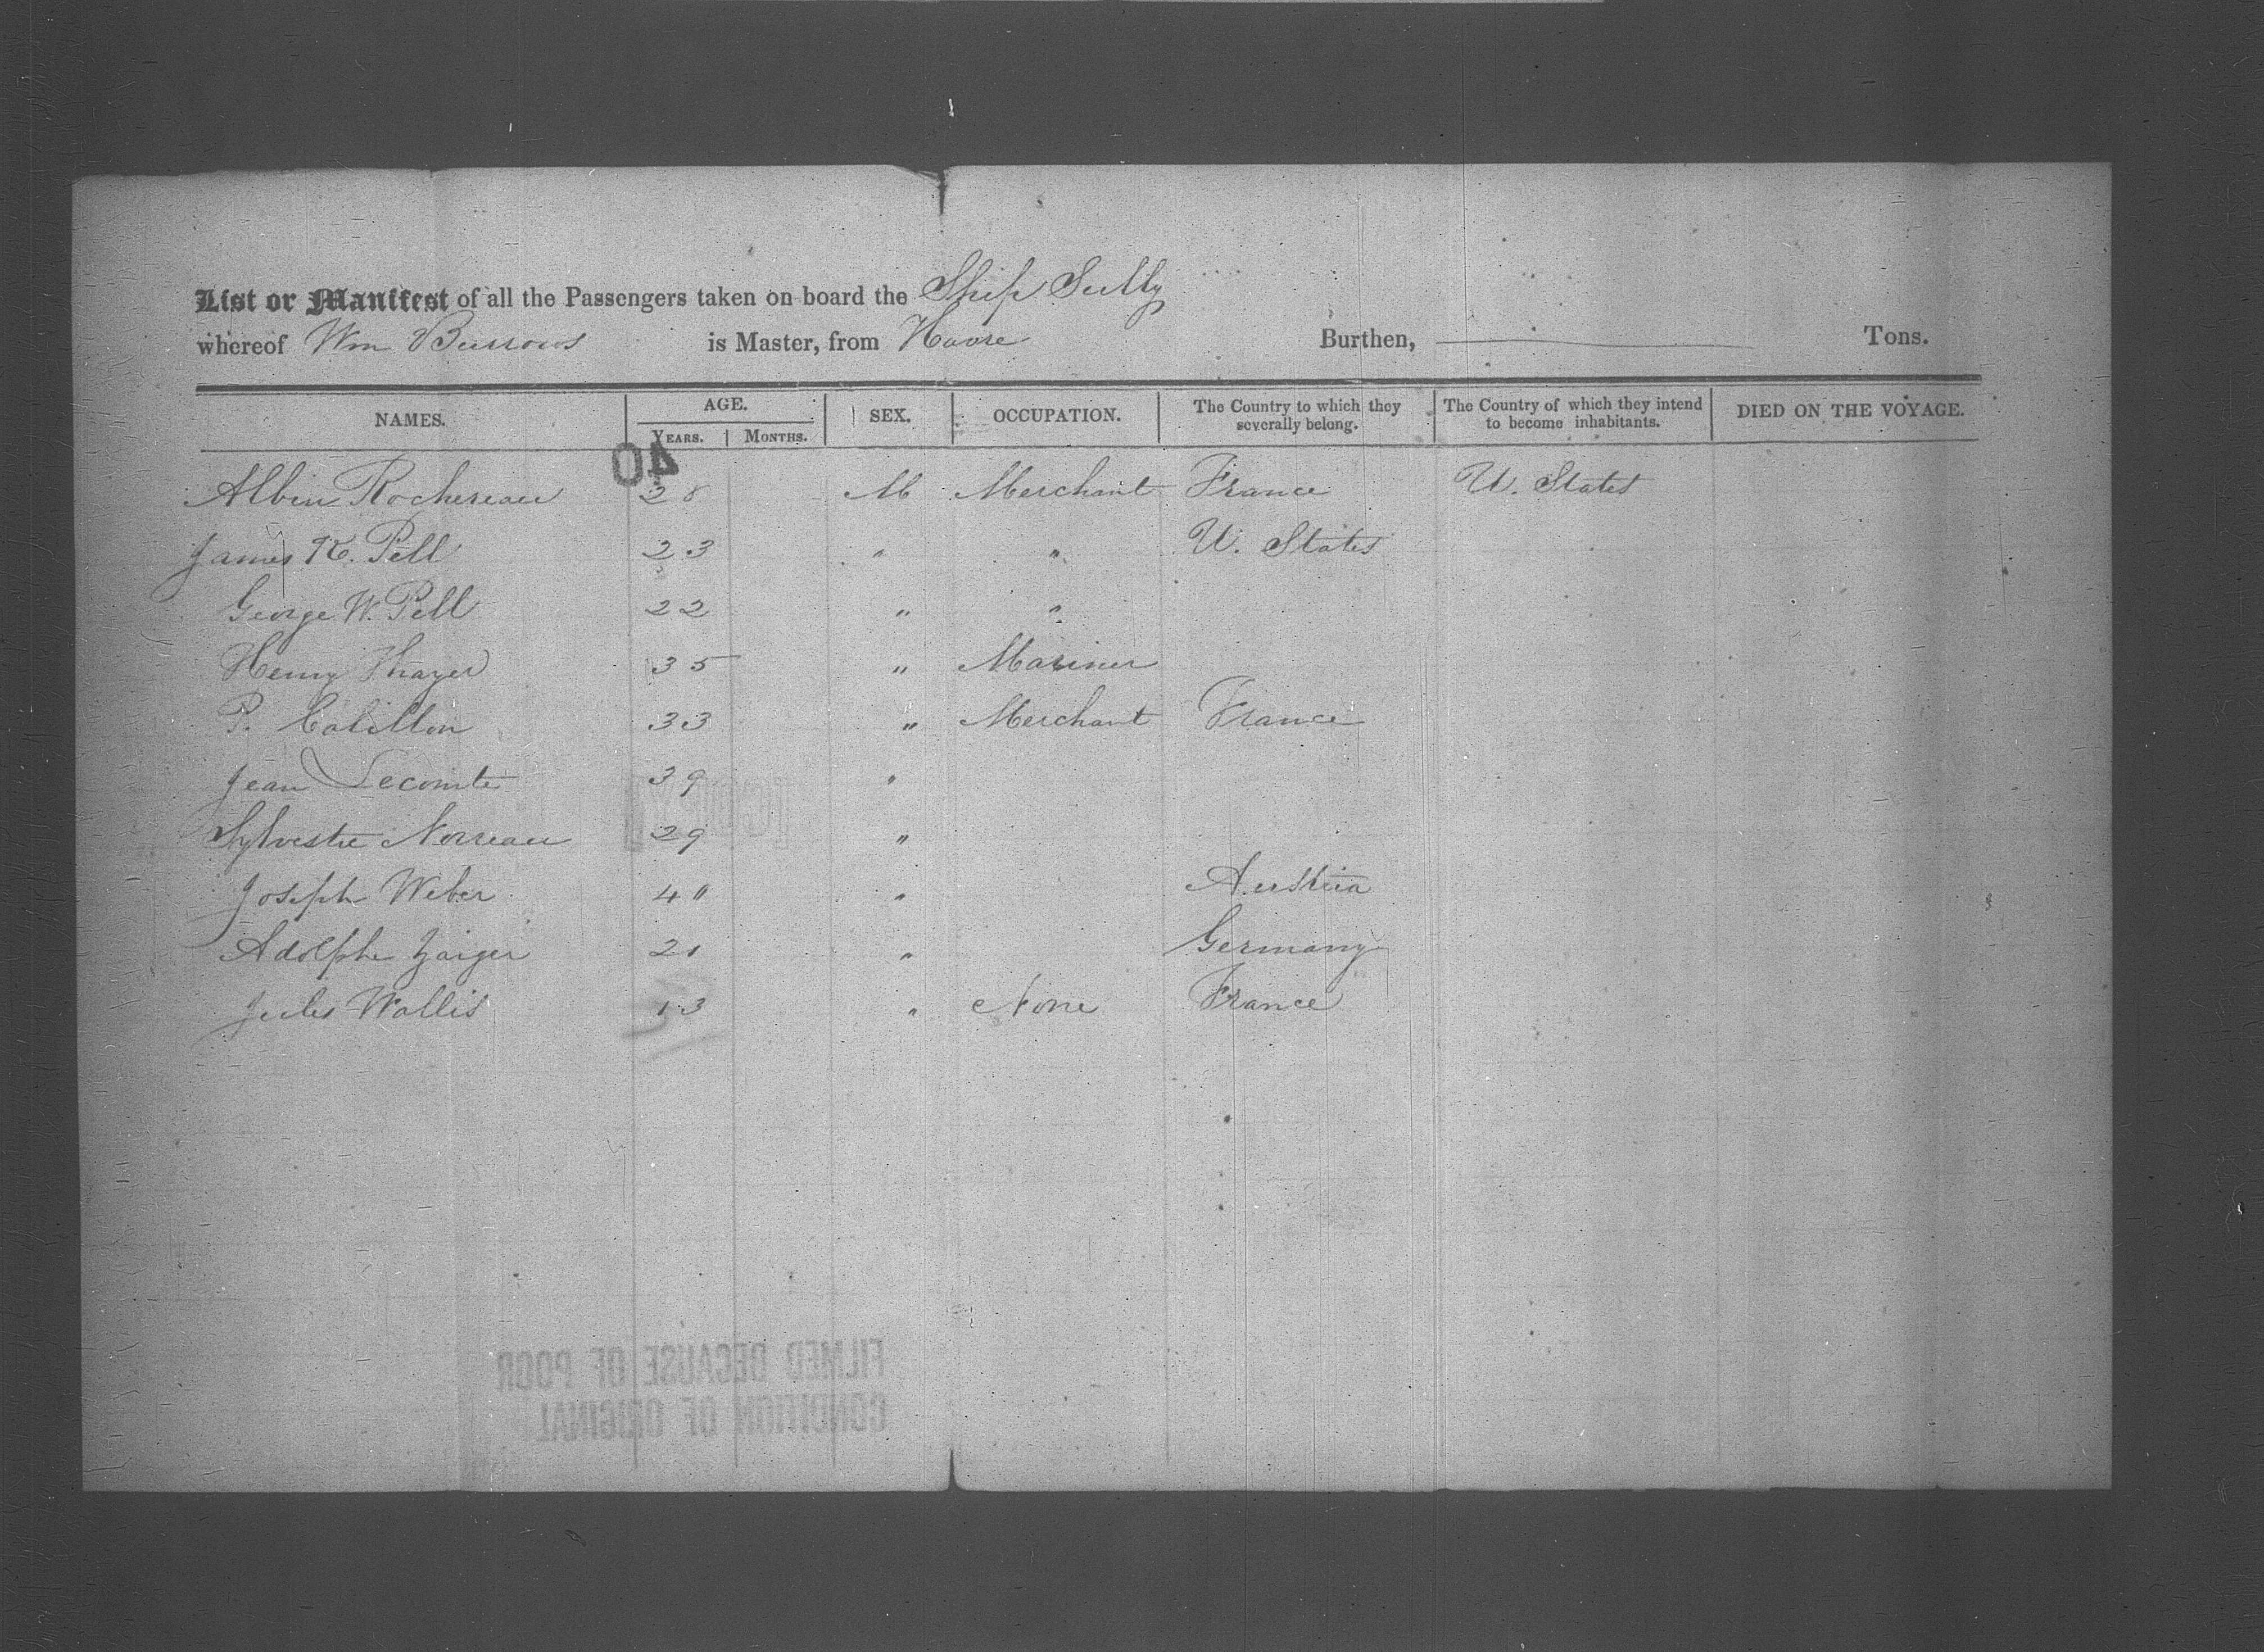 List or Manifest of all the Passengers taken on board the Ship Sully
whereof Wm Burrows is Master, from Havre Burthen, Tons.
NAMES. AGE. SEX. OCCUPATION. The Country to which they severally belong. The Country of which they intend to become inhabitants. DIED ON THE VOYAGE.
YEARS. MONTHS.
40
Albin Rochereau 28 M Merchant France U. States
James K. Pell 23 " " U. States
George W. Pell 22 " "
Henry Thayer 35 " Mariner
P. Cabillon 33 " Merchant France
Jean Lecomte 39 "
Sylvestre Norreau 29 "
Joseph Weber 40 " Austria
Adolphe 21 " Germany
Jules Wallis 13 " None France
FILMED BECAUSE OF POOR
CONDITION OF ORIGINAL